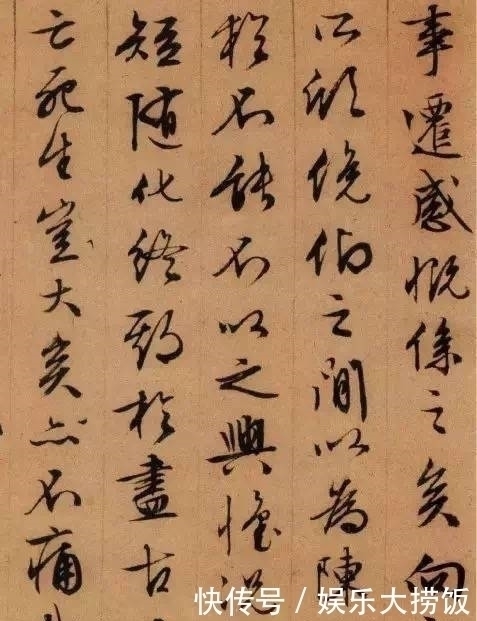 事遷感慨係之矣向
所欣俛仰之間以為陳
猶不能不以之興懷況
短隨化終期於盡古
云死生豈大矣亦不痛
快传号 / 娱乐大捞饭